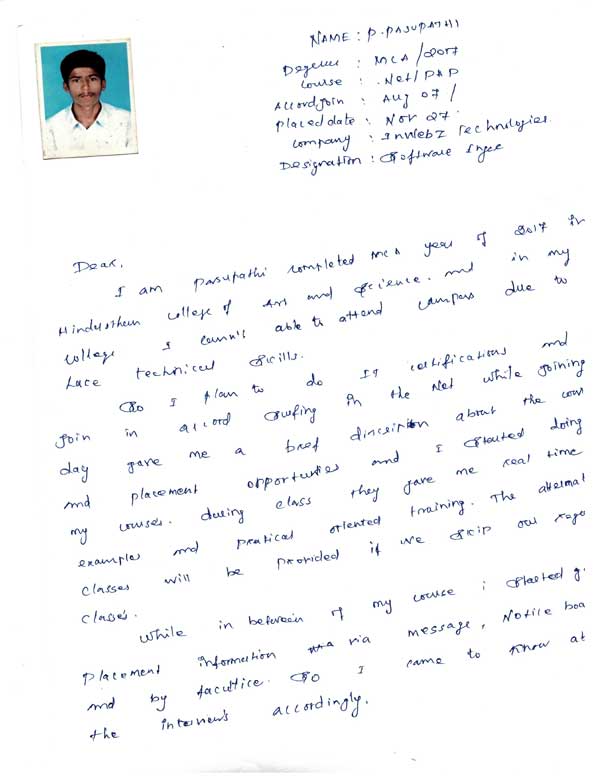 NAME : P. PASUPATHI
Degeree : MCA / 2017
Course : .Net / PHP
Accord join : Aug 07 /
Placed date : Nov 27.
Company : InWebz Technologies.
Designation : Software Ingee
Dear,
I am pasupathi completed MCA year of 2017 in
Hindusthan College of Art and Science. And in my
College I cann't able to attend campass due to
lace technical skills.
So I plan to do IT certifications and
join in accord surfing in the Net while joining
day gave me a brief about the cour
and placement opportunties and I started doing
my courses. during class they gave me real time
examples and pratical oriented training. The
classes will be provided if we skip our
classes.
While in between of my course i started g.
placement information via message, Notice boa
and by facultice. So I came to know at
the interviews accordingly.